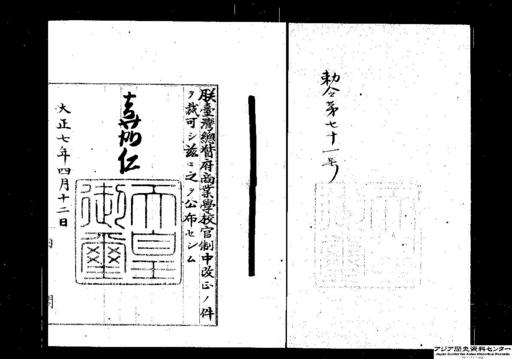 勅令第七十一号
朕臺灣總督府商業學校官制中改正ノ件
ヲ裁可シ茲ニ之ヲ公布セシム
嘉仁
天皇御璽
大正七年四月十二日
アジア歴史資料センター
Japan Center for Asian Historical Records